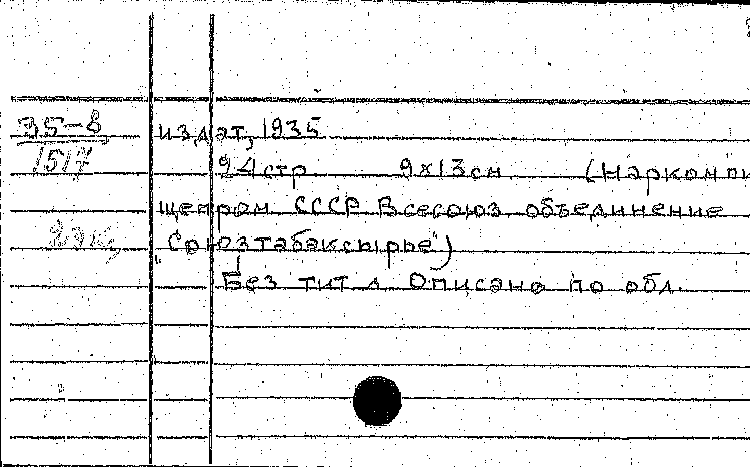 35-8
1517
издат, 1935
24 стр 9х13 см (Наркомпи
щепром СССР Всесоюз объединение
"Союзтабаксырье")
Без тит л Описано по обл.